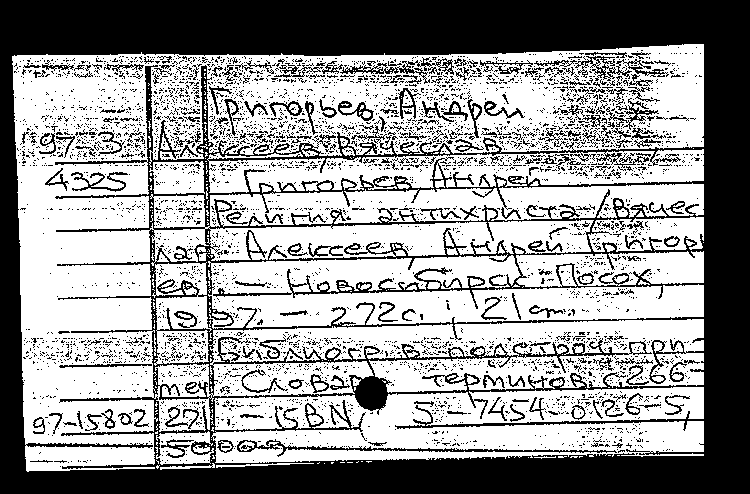 Григорьев, Андрей
97-3 Алексеев, Вячеслав
4325 Григорьев, Андрей
Религия антихриста / Вячес
лав Алексеев, Андрей Григорь
ев. — Новосибирск: Посох,
1997. — 272с.; 21 cm.
Библиогр. в подстроч. при-
меч. Словарь терминов: с.266-
97-15802 271. — ISBN 5-7454-0126-5,
5000э